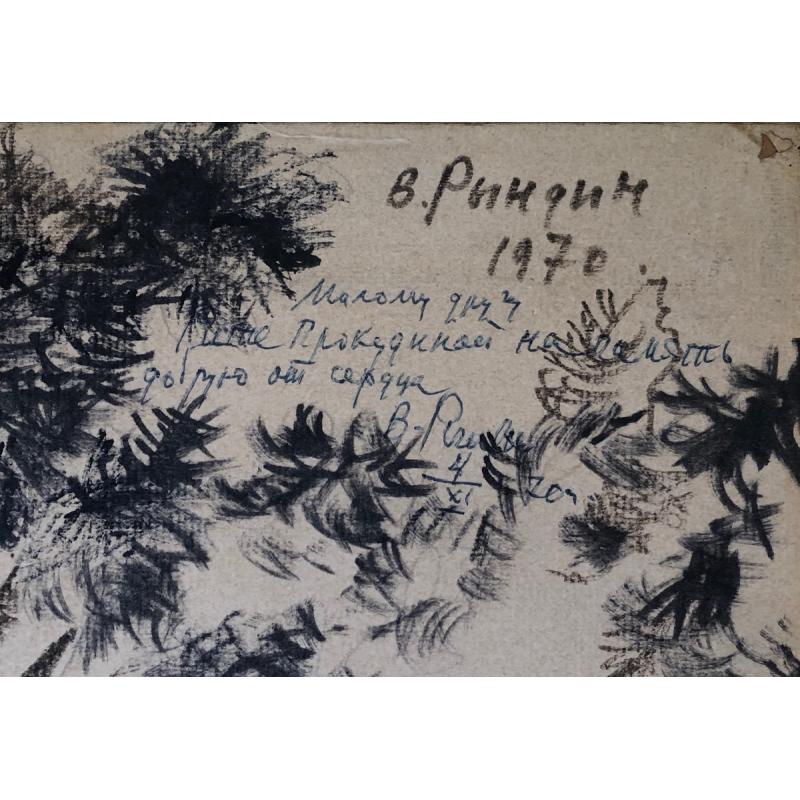 В. Рындин
1970.
Милому другу
Рите Прокудиной на память
дарую от сердца
В. Рындин
4
XI 70г.